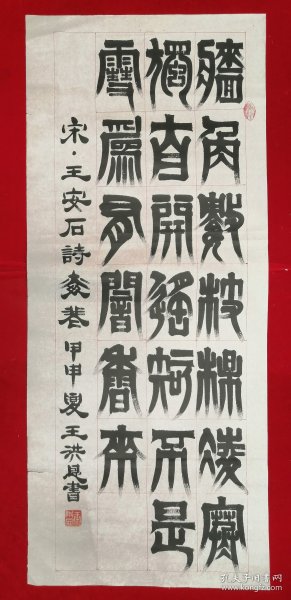 牆角數枝楳凌寒
獨自開遙知不是
雪爲有闇香來
宋·王安石詩 甲申夏王洪恩書
孔夫子旧书网